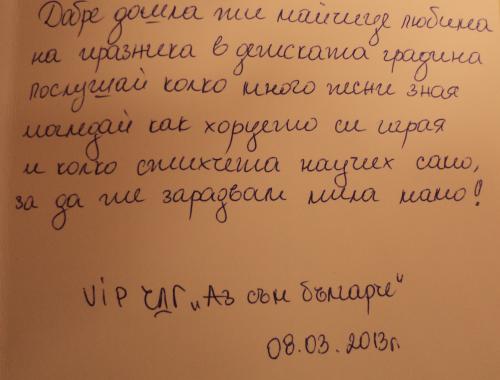 Добре дошла ти майчице любима
на празника в детската градина
послушай колко много песни зная
погледай как хорцето си играя
и колко стихчета научих само,
за да те зарадвам мила мамо!
VIP ЧДГ „Аз съм българче“
08.03.2013г.